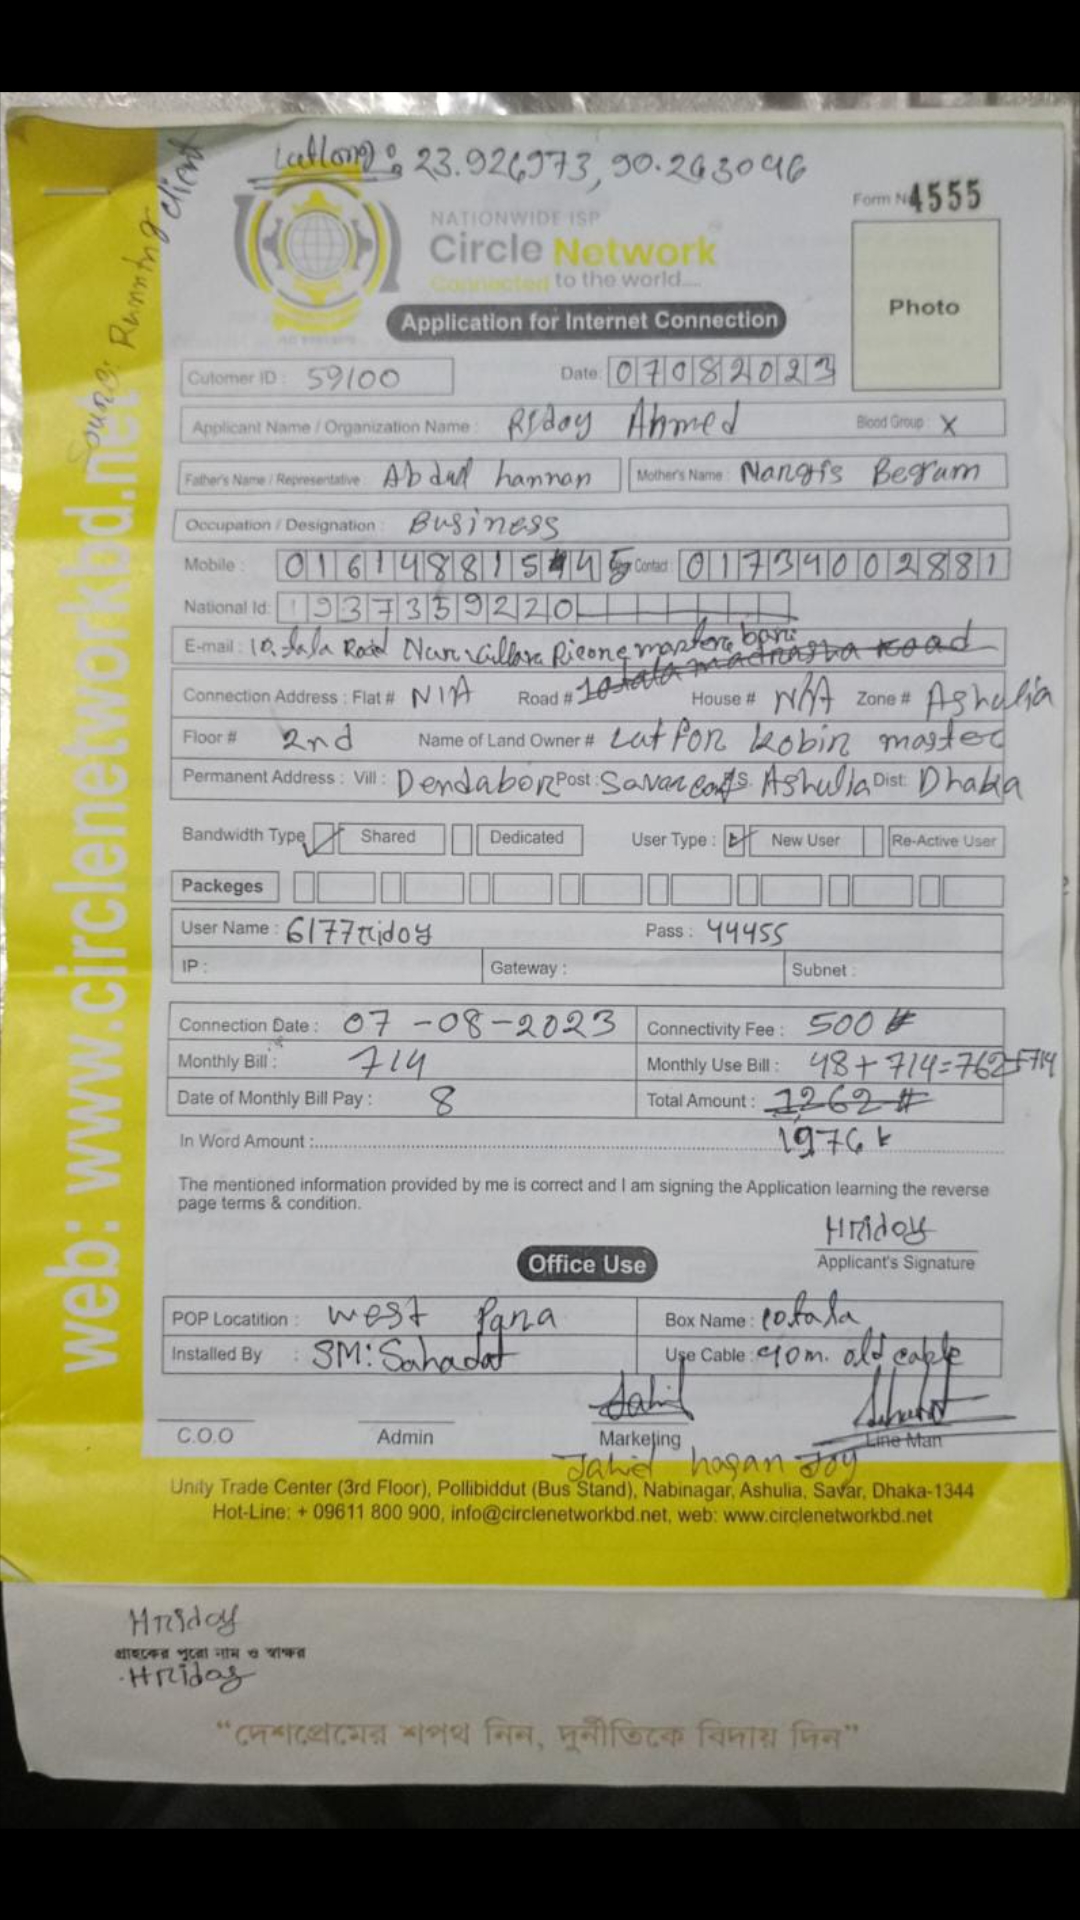 Latlong: 23.926973, 90.263096
Form N 4555
NATIONWIDE ISP
Circle Network
Connected to the world....
Photo
Application for Internet Connection
Running client
web: www.circlenetworkbd.net
Cutomer ID : 59100 Date: 07082023
Applicant Name / Organization Name : Riday Ahmed Blood Group : X
Father's Name / Representative : Abdul hannan Mother's Name : Nargis Begum
Occupation / Designation : Business
Mobile : Contact 01734002881
National Id: 1937359220
E-mail : 10, tala Road bari
Connection Address : Flat # N/A Road # House # N/A Zone # Ashulia
Floor # 2nd Name of Land Owner # Lutfor kobir master
Permanent Address : Vill : Dendabor Post : Savar cant P.S. Ashulia Dist: Dhaka
Bandwidth Type Shared Dedicated User Type : New User Re-Active User
Packeges
User Name : 6177ridoy Pass : 44455
IP : Gateway : Subnet :
Connection Date : 07-08-2023 Connectivity Fee : 500
Monthly Bill : 714 Monthly Use Bill : 48+714=762+714
Date of Monthly Bill Pay : 8 Total Amount : 1262
In Word Amount :.......... 1976
The mentioned information provided by me is correct and I am signing the Application learning the reverse
page terms & condition.
Hridoy
Applicant's Signature
Office Use
POP Locatition : west Para Box Name : 10tala
Installed By : SM: Sahadat Use Cable : 90m. old cable
C.O.O Admin Marketing Line Man
Jahid hasan Joy
Unity Trade Center (3rd Floor), Pollibiddut (Bus Stand), Nabinagar, Ashulia, Savar, Dhaka-1344
Hot-Line: + 09611 800 900, info@circlenetworkbd.net, web: www.circlenetworkbd.net
Hridoy
গ্রাহকের পুরো নাম ও স্বাক্ষর
Hridoy
“দেশপ্রেমের শপথ নিন, দুর্নীতিকে বিদায় দিন”